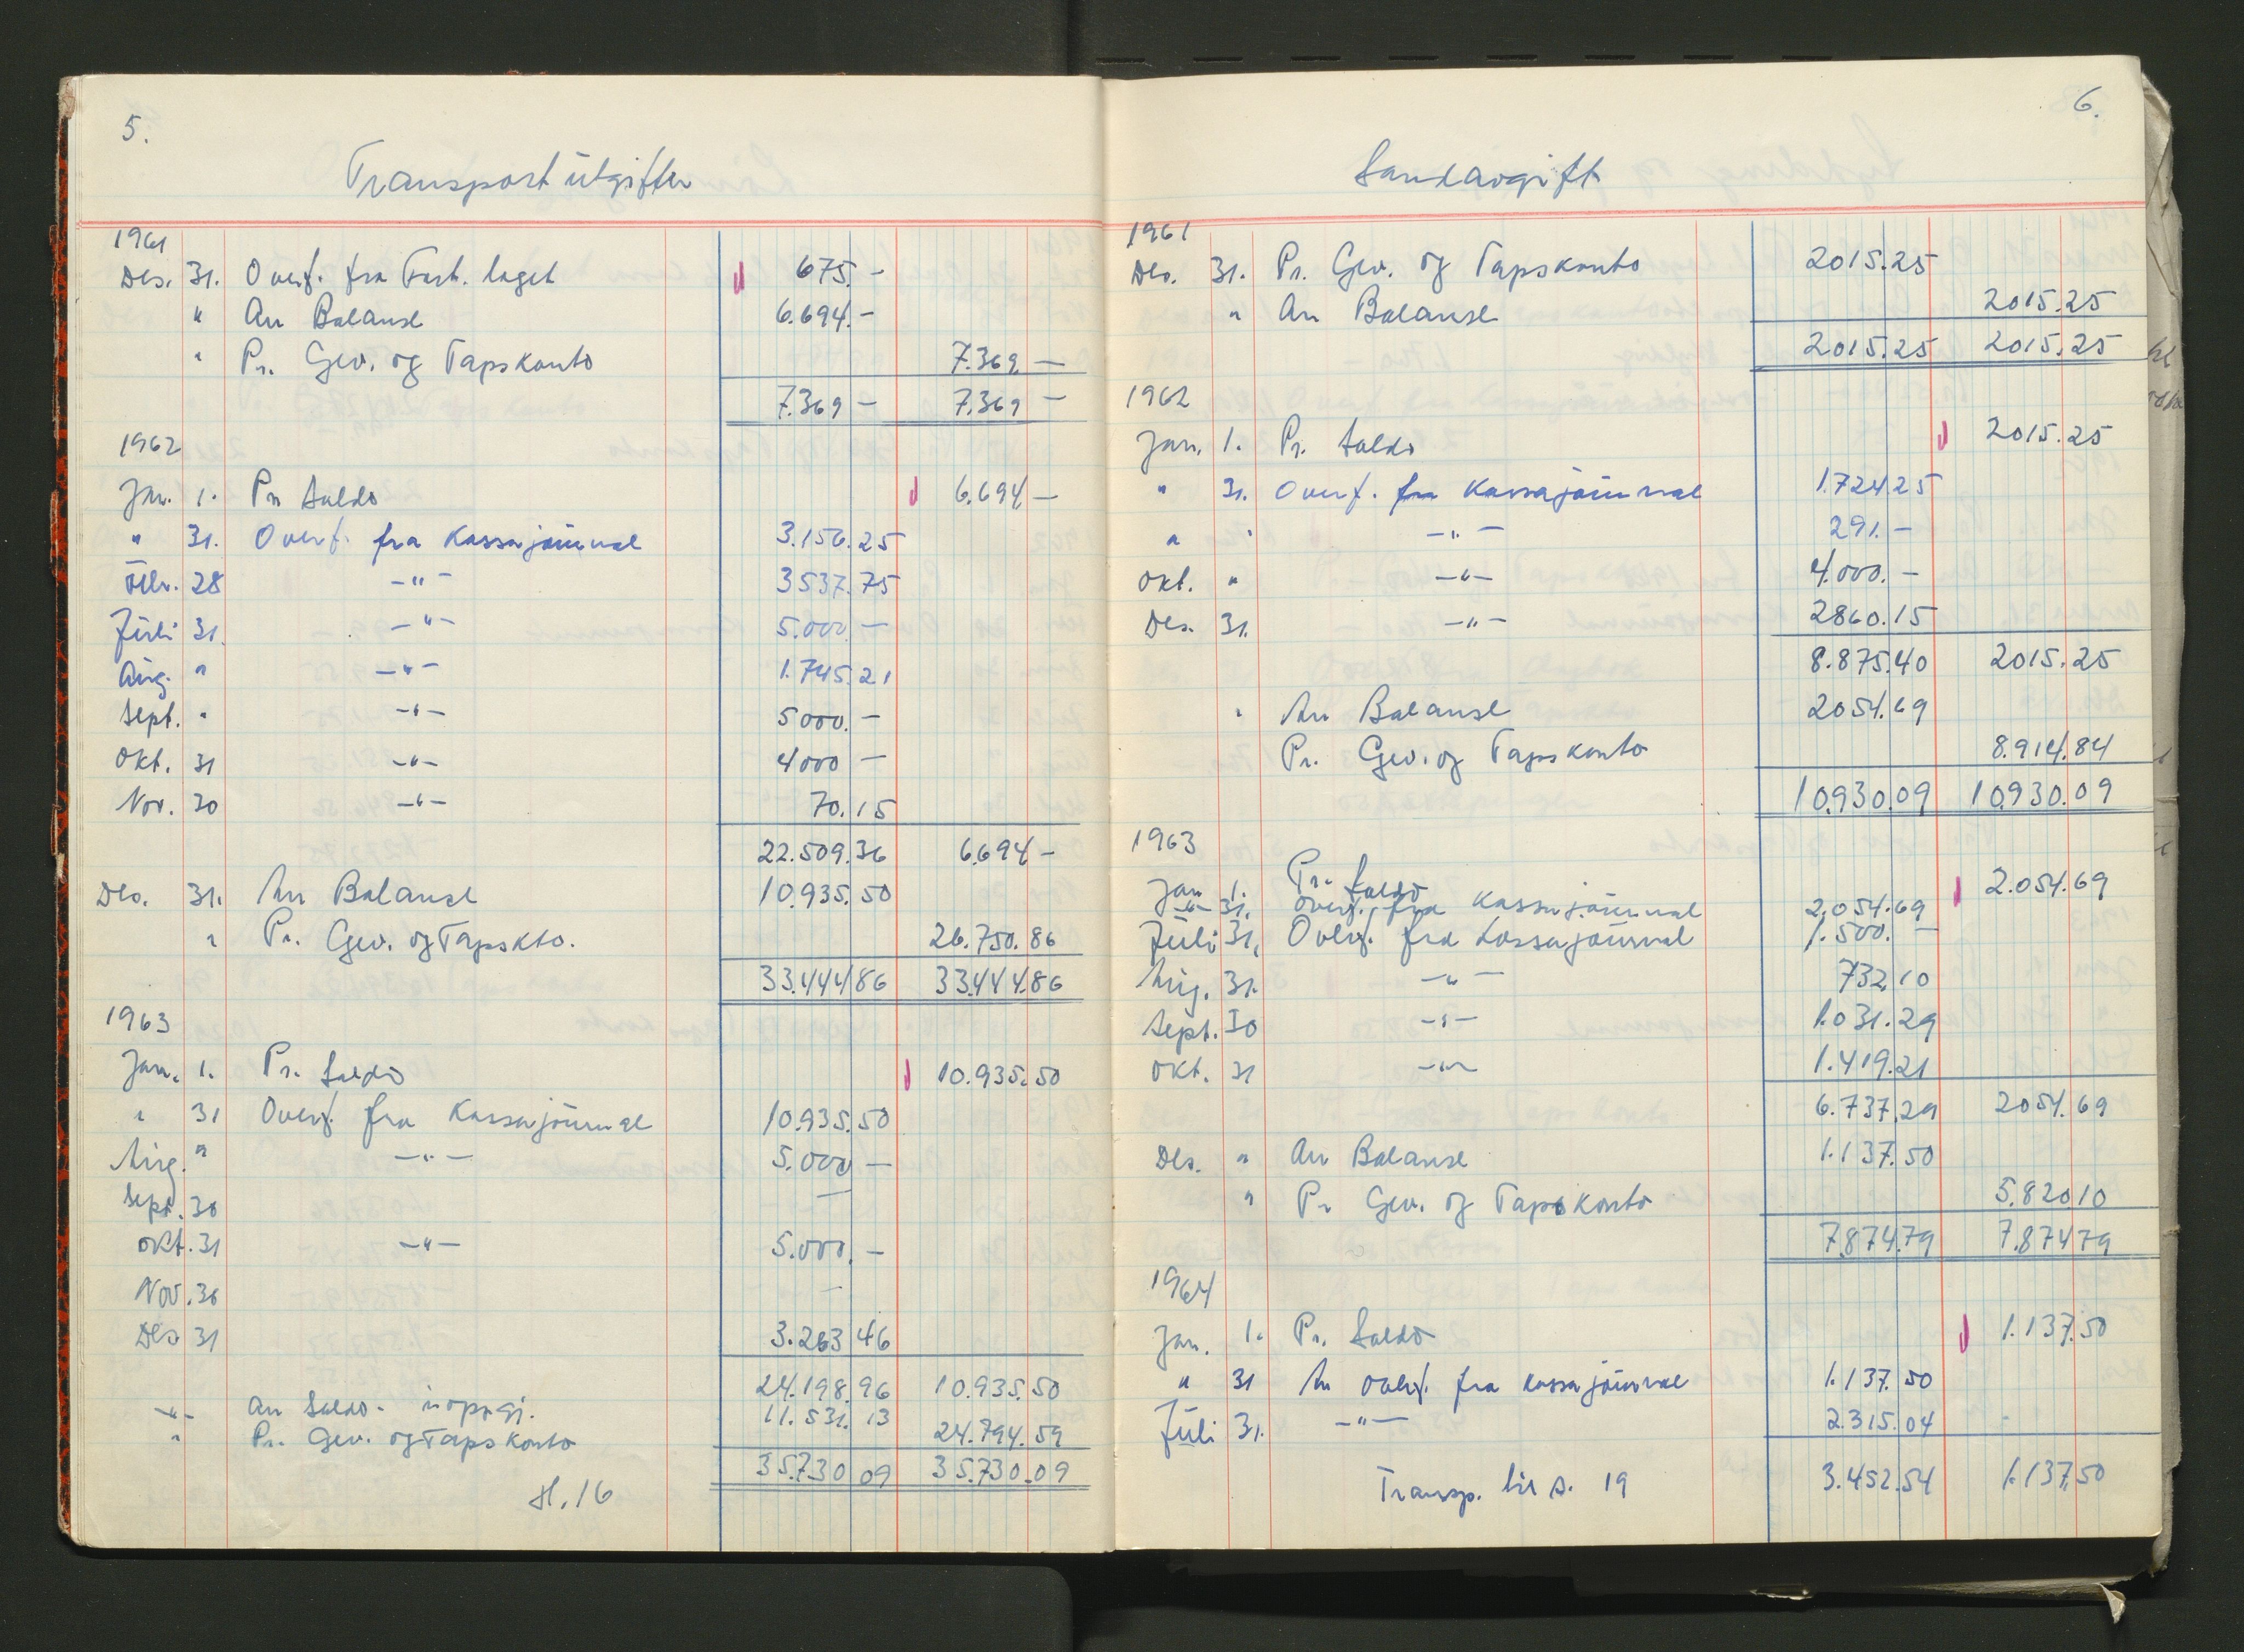 5.
Transportutgifter
1961
Des. 31. Overf. fra Fort. laget 675.-
" An Balanse 6.694.-
" Pr. Gev. og Tapskonto 7.369.—
7.369 — 7.369 —
1962
Jan. 1. Pr. Saldo 6.694 —
" 31. Overf. fra Kassajournal 3.156.25
Febr. 28 —"— 3537.75
Juli 31. —"— 5.000.—
Aug. " —"— 1.745.21
Sept. " —"— 5000.—
Okt. 31 —"— 4000 —
Nov. 30 —"— 70.15
22.509.36 6.694 -
Des. 31. An Balanse 10.935.50
" Pr. Gev. og Tapskto. 26.750.86
33.444 86 33.444.86
1963
Jan. 1. Pr. Saldo 10.935.50
" 31 Overf. fra Kassajournal 10.935.50
Aug. " —"— 5.000 —
Sept. 30 —
Okt. 31 —"— 5.000.—
Nov. 30 —
Des 31 3.263 46
24.198.96 10.935.50
—"— An Saldo - 11.531.13
" Pr. Gev. og Tapskonto 24.794.59
35.730 09 35.730.09
16
6.
Sandavgift
1961
Des. 31. Pr. Gev. og Tapskonto 2015.25
" An Balanse 2015.25
2015.25 2015.25
1962
Jan. 1. Pr. Saldo 2015.25
" 31. Overf. fra Kassajournal 1.724 25
" " —"— 291.—
Okt. " —"— 4.000.—
Des. 31. —"— 2860.15
8.875.40 2015.25
" An Balanse 2054.69
Pr. Gev. og Tapskonto 8.914.84
10.930.09 10.930.09
1963
Jan 1. Pr. Saldo 2.054.69
—"— 31. Overf. fra Kassajournal 2.054.69
Juli 31. Overf. fra Kassajournal 1.500.—
Aug. 31. —"— 732.10
Sept. 30 —"— 1.031.29
Okt. 31 —"— 1.419.21
6.737.29 2054.69
Des. " An Balanse 1.137.50
" Pr Gev. og Tapskonto 5.820 10
7.874.79 7.874 79
1964
Jan. 1. Pr. Saldo 1.137.50
" 31 An overf. fra Kassajournal 1.137.50
Juli 31. —"— 2.315.04
Transp. til s. 19 3.452.54 1.137.50